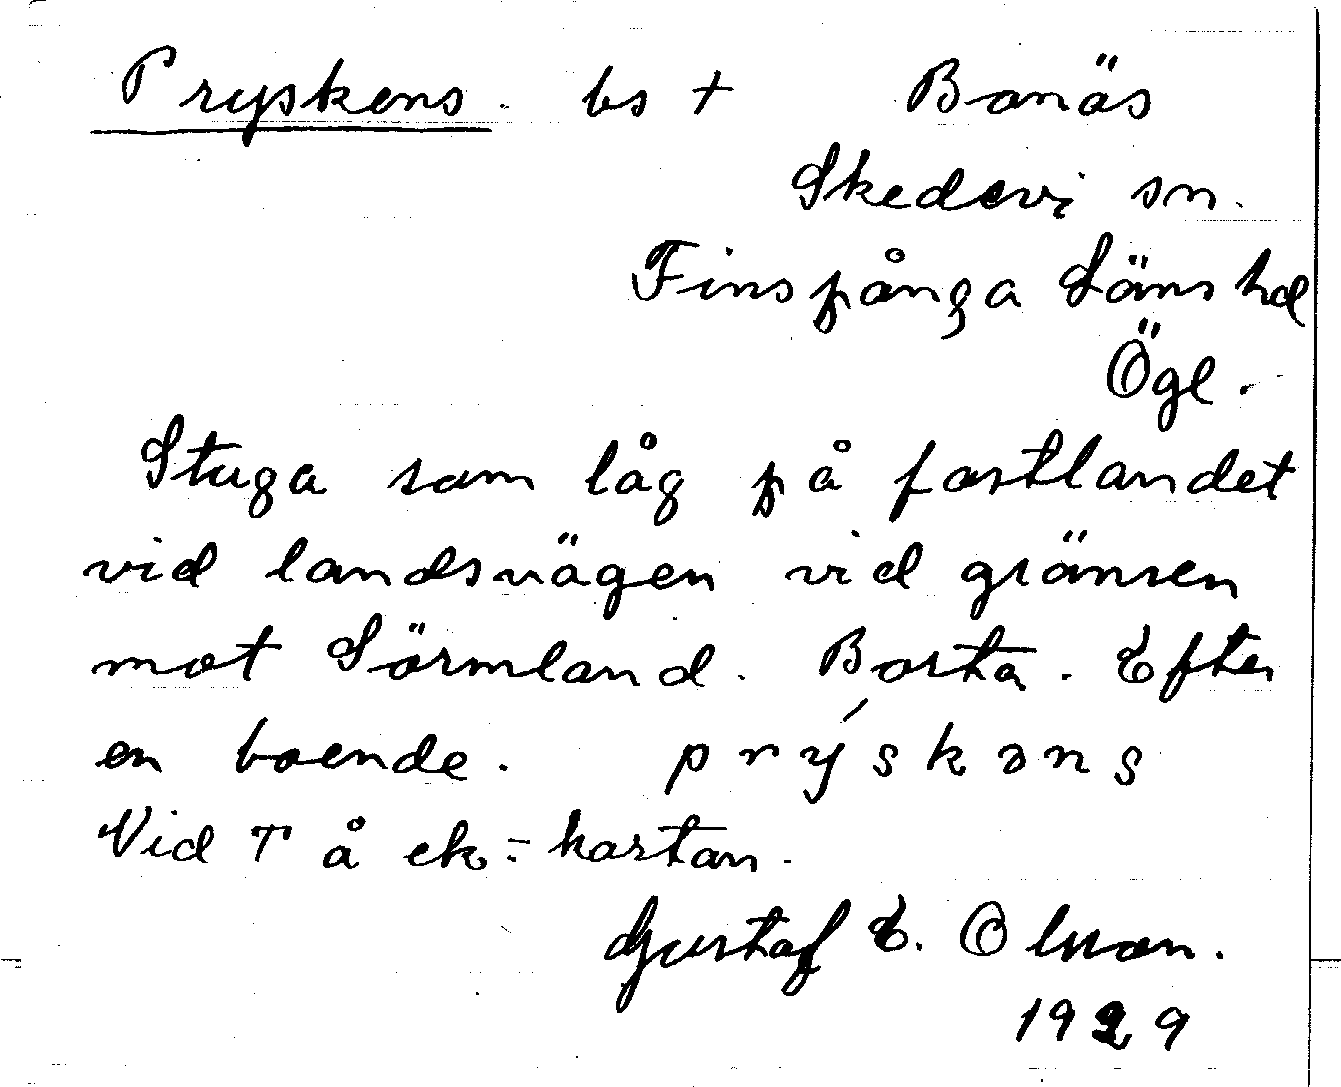 Pryskens. bs + Banäs
Skedevi sn.
Finspånga Läns hd
Ögl.
Stuga som låg på fastlandet
vid landsvägen vid gränsen
mot Sörmland. Borta. Efter
en boende. prýskəns
Vid T å ek-kartan.
Gustaf E. Olsson.
1929